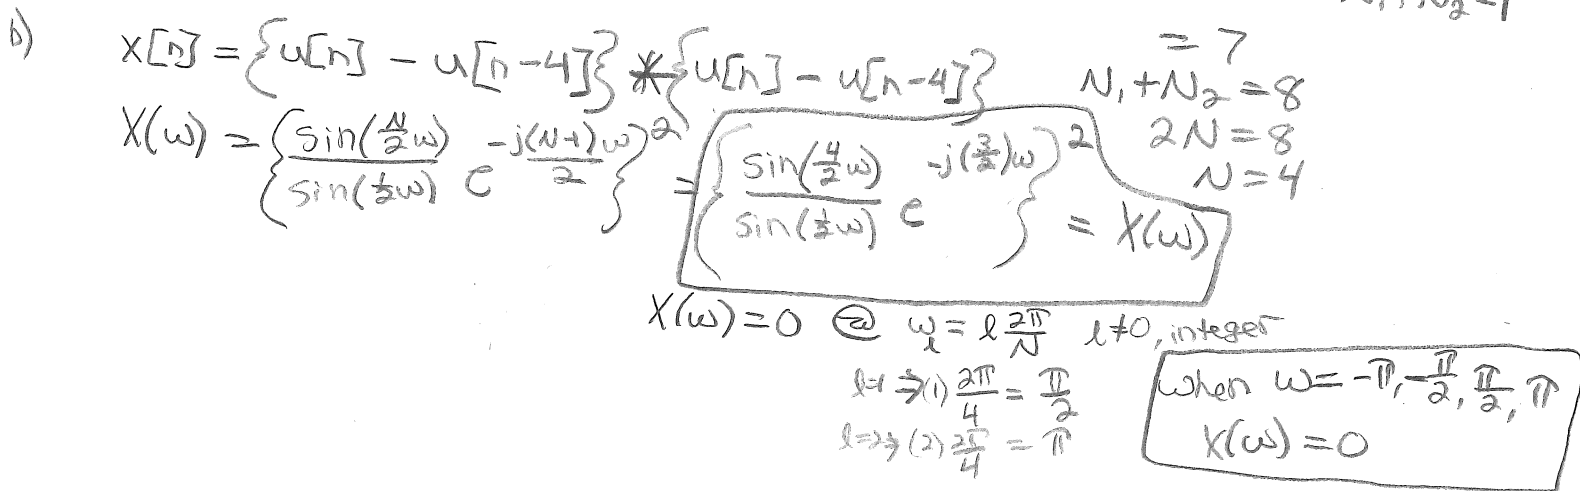 N₁+N₂-1
b) x[n] = {u[n] - u[n-4]} * {u[n] - u[n-4]}
= 7
N₁+N₂ = 8
2N = 8
N = 4
X(ω) = {sin(N/2 ω)/sin(½ω) e^(-j(N-1)ω/2)}² = {sin(4/2 ω)/sin(½ω) e^(-j(3/2)ω)}² = X(ω)
X(ω) = 0 @ ω_l = l 2π/N l≠0, integer
l=1 ⇒ (1) 2π/4 = π/2
l=2 ⇒ (2) 2π/4 = π
when ω = -π, -π/2, π/2, π
X(ω) = 0